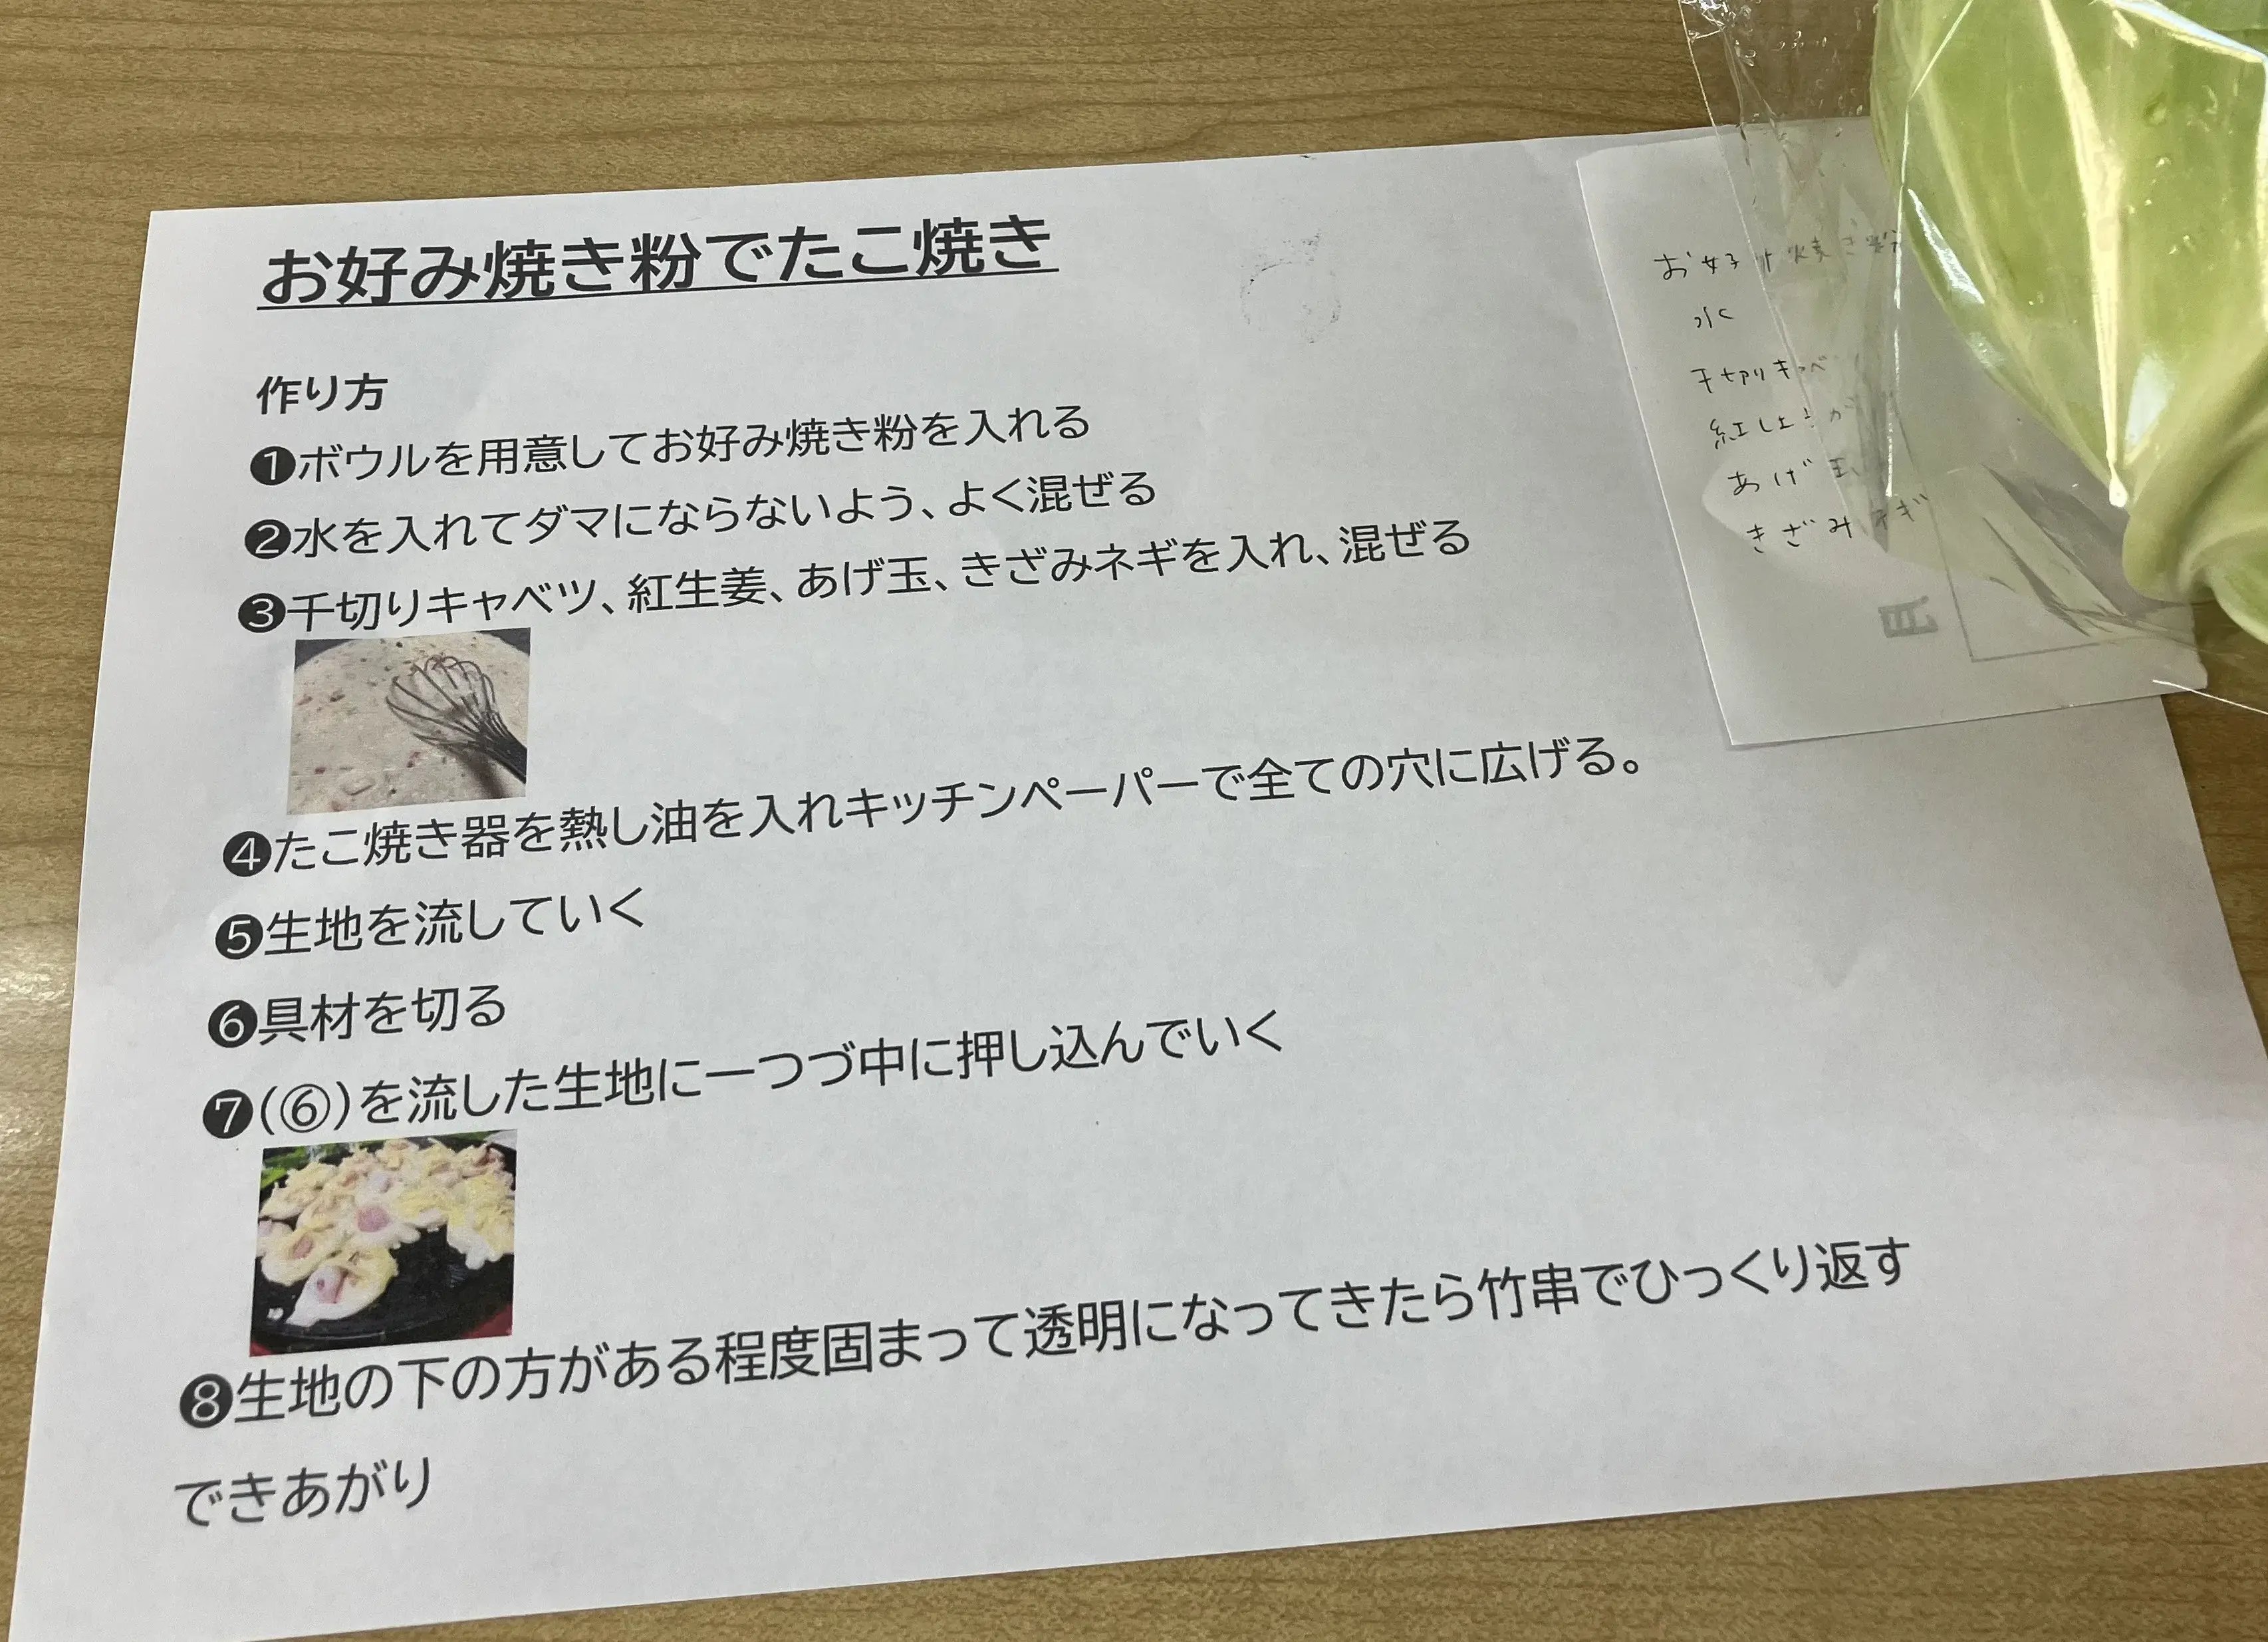 お好み焼き粉でたこ焼き
作り方
❶ボウルを用意してお好み焼き粉を入れる
❷水を入れてダマにならないよう、よく混ぜる
❸千切りキャベツ、紅生姜、あげ玉、きざみネギを入れ、混ぜる
❹たこ焼き器を熱し油を入れキッチンペーパーで全ての穴に広げる。
❺生地を流していく
❻具材を切る
❼(⑥)を流した生地に一つづ中に押し込んでいく
❽生地の下の方がある程度固まって透明になってきたら竹串でひっくり返す
できあがり
お好み焼き粉
水
千切りキャベ
紅しょうが
あげ玉
きざみネギ